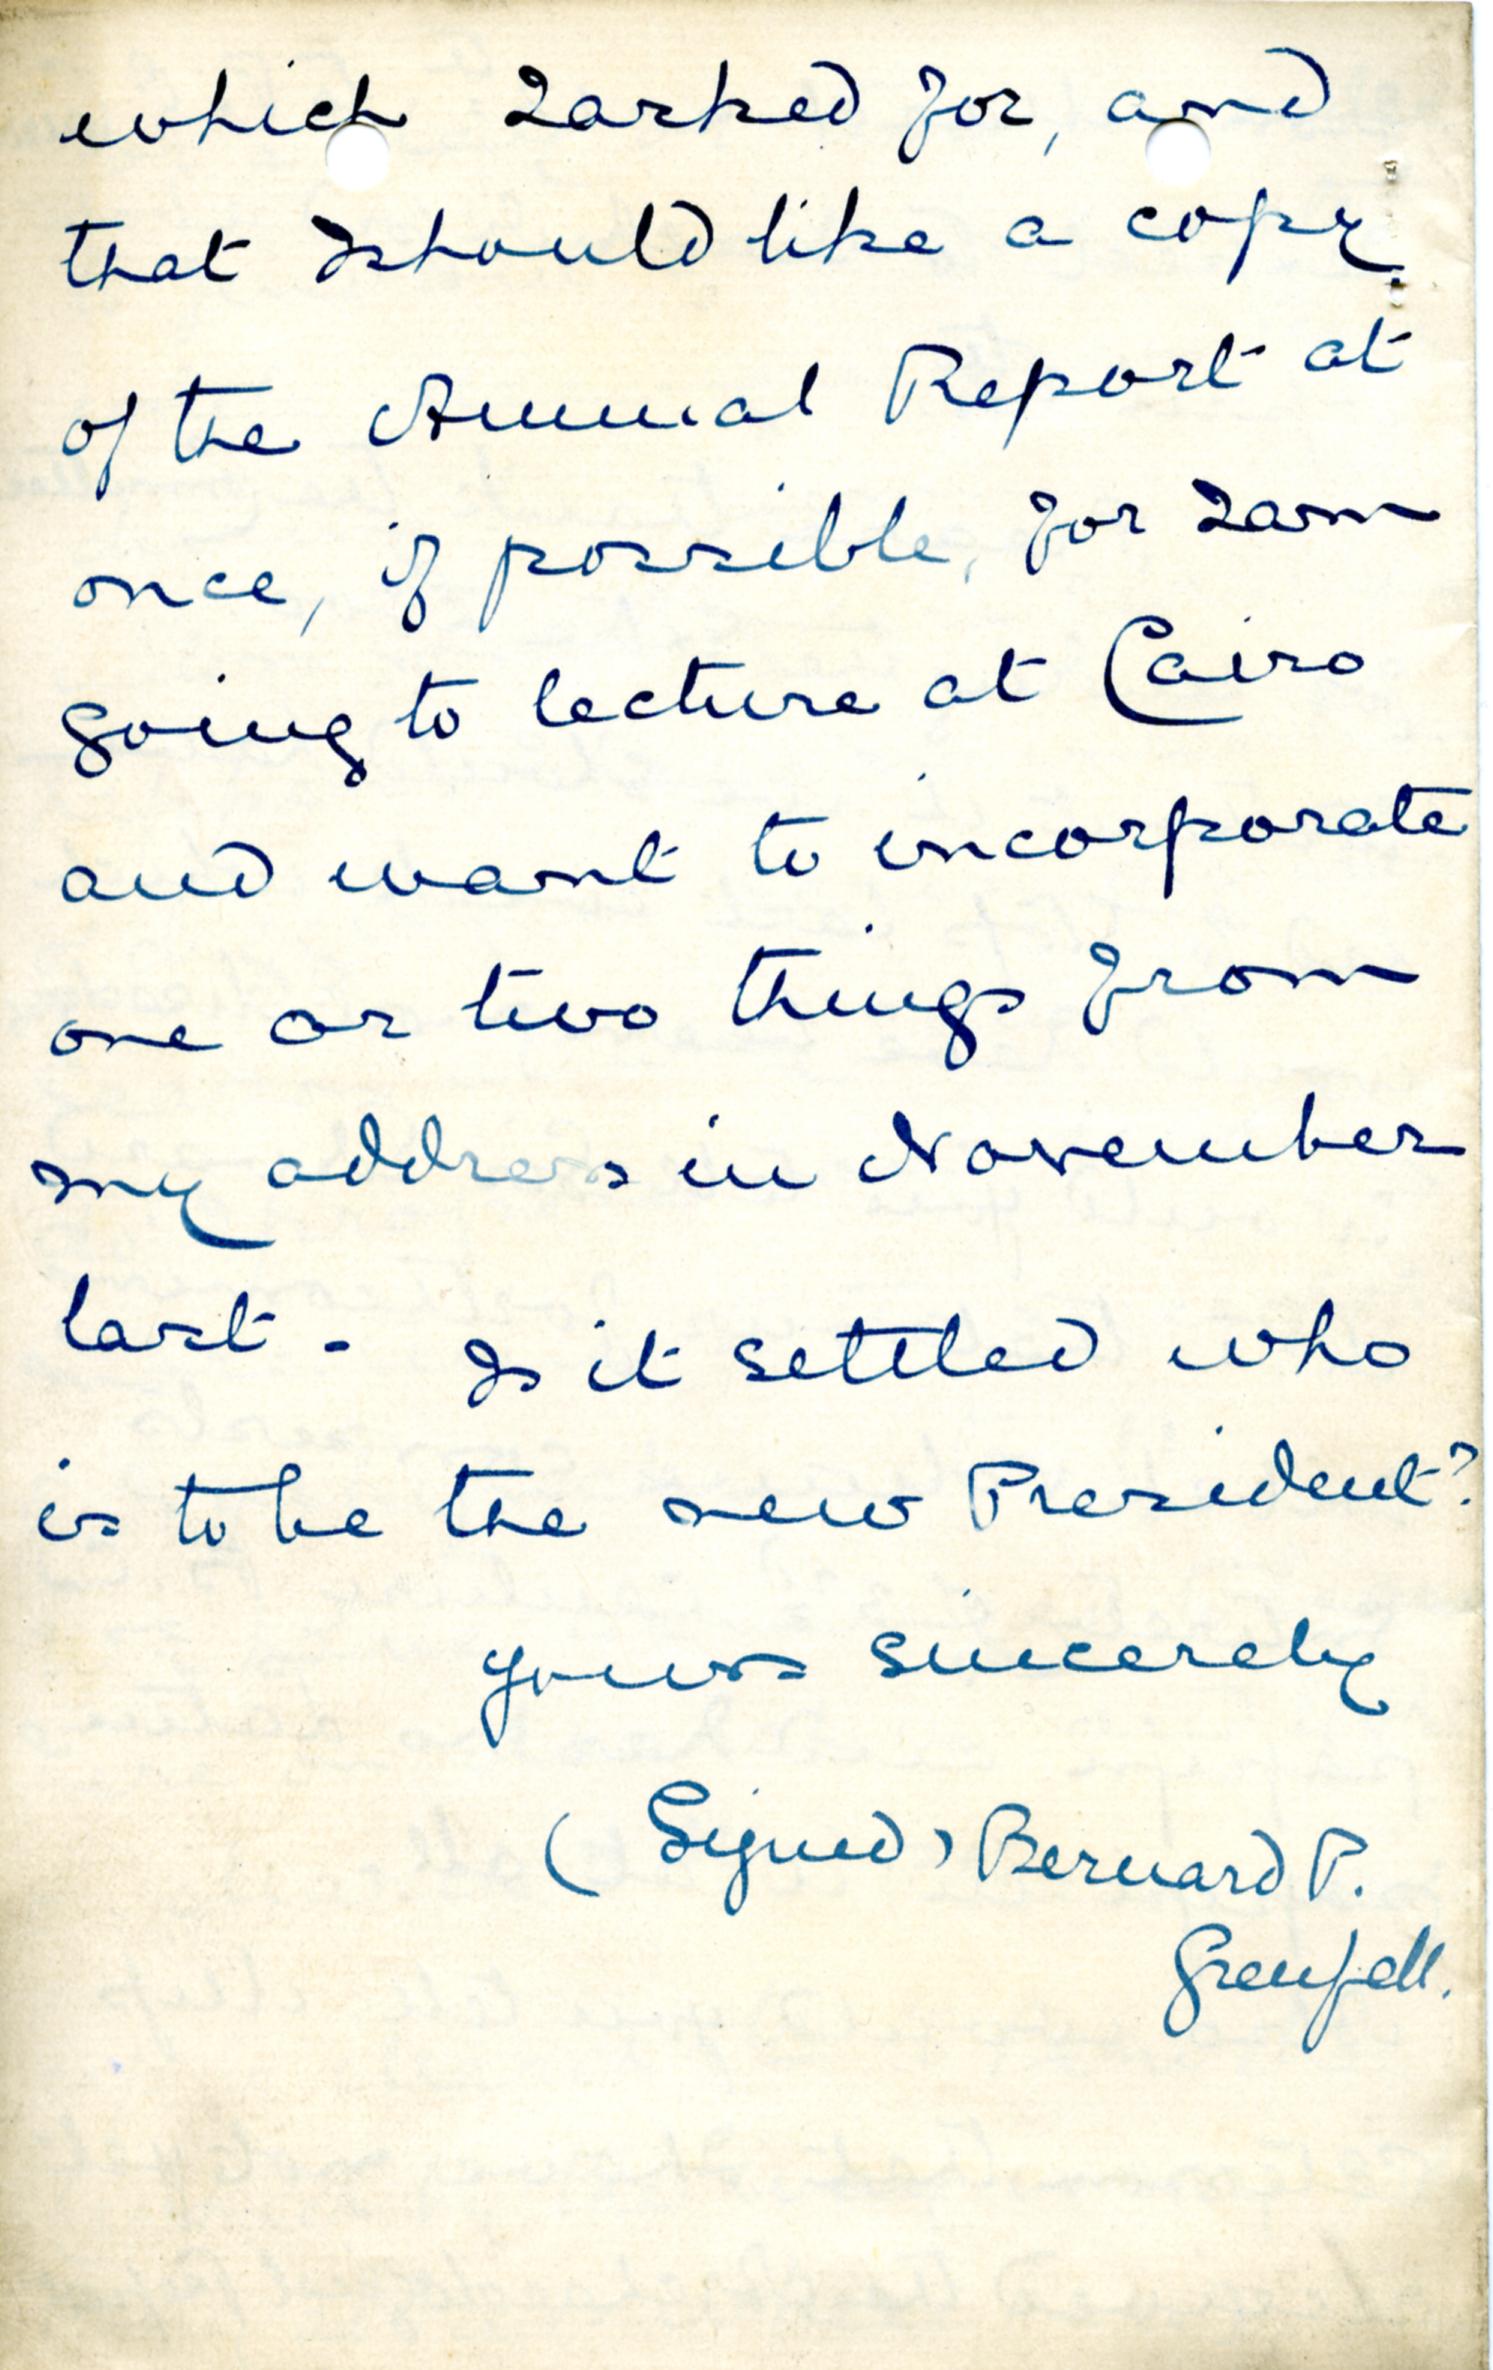 which I asked for, and
that I should like a copy
of the Annual Report at
once, if possible, for I am
going to lecture at Cairo
and want to incorporate
one or two things from
my address in November
last. Is it settled who
is to be the new President?
Yours sincerely
(Signed) Bernard P.
Grenfell.